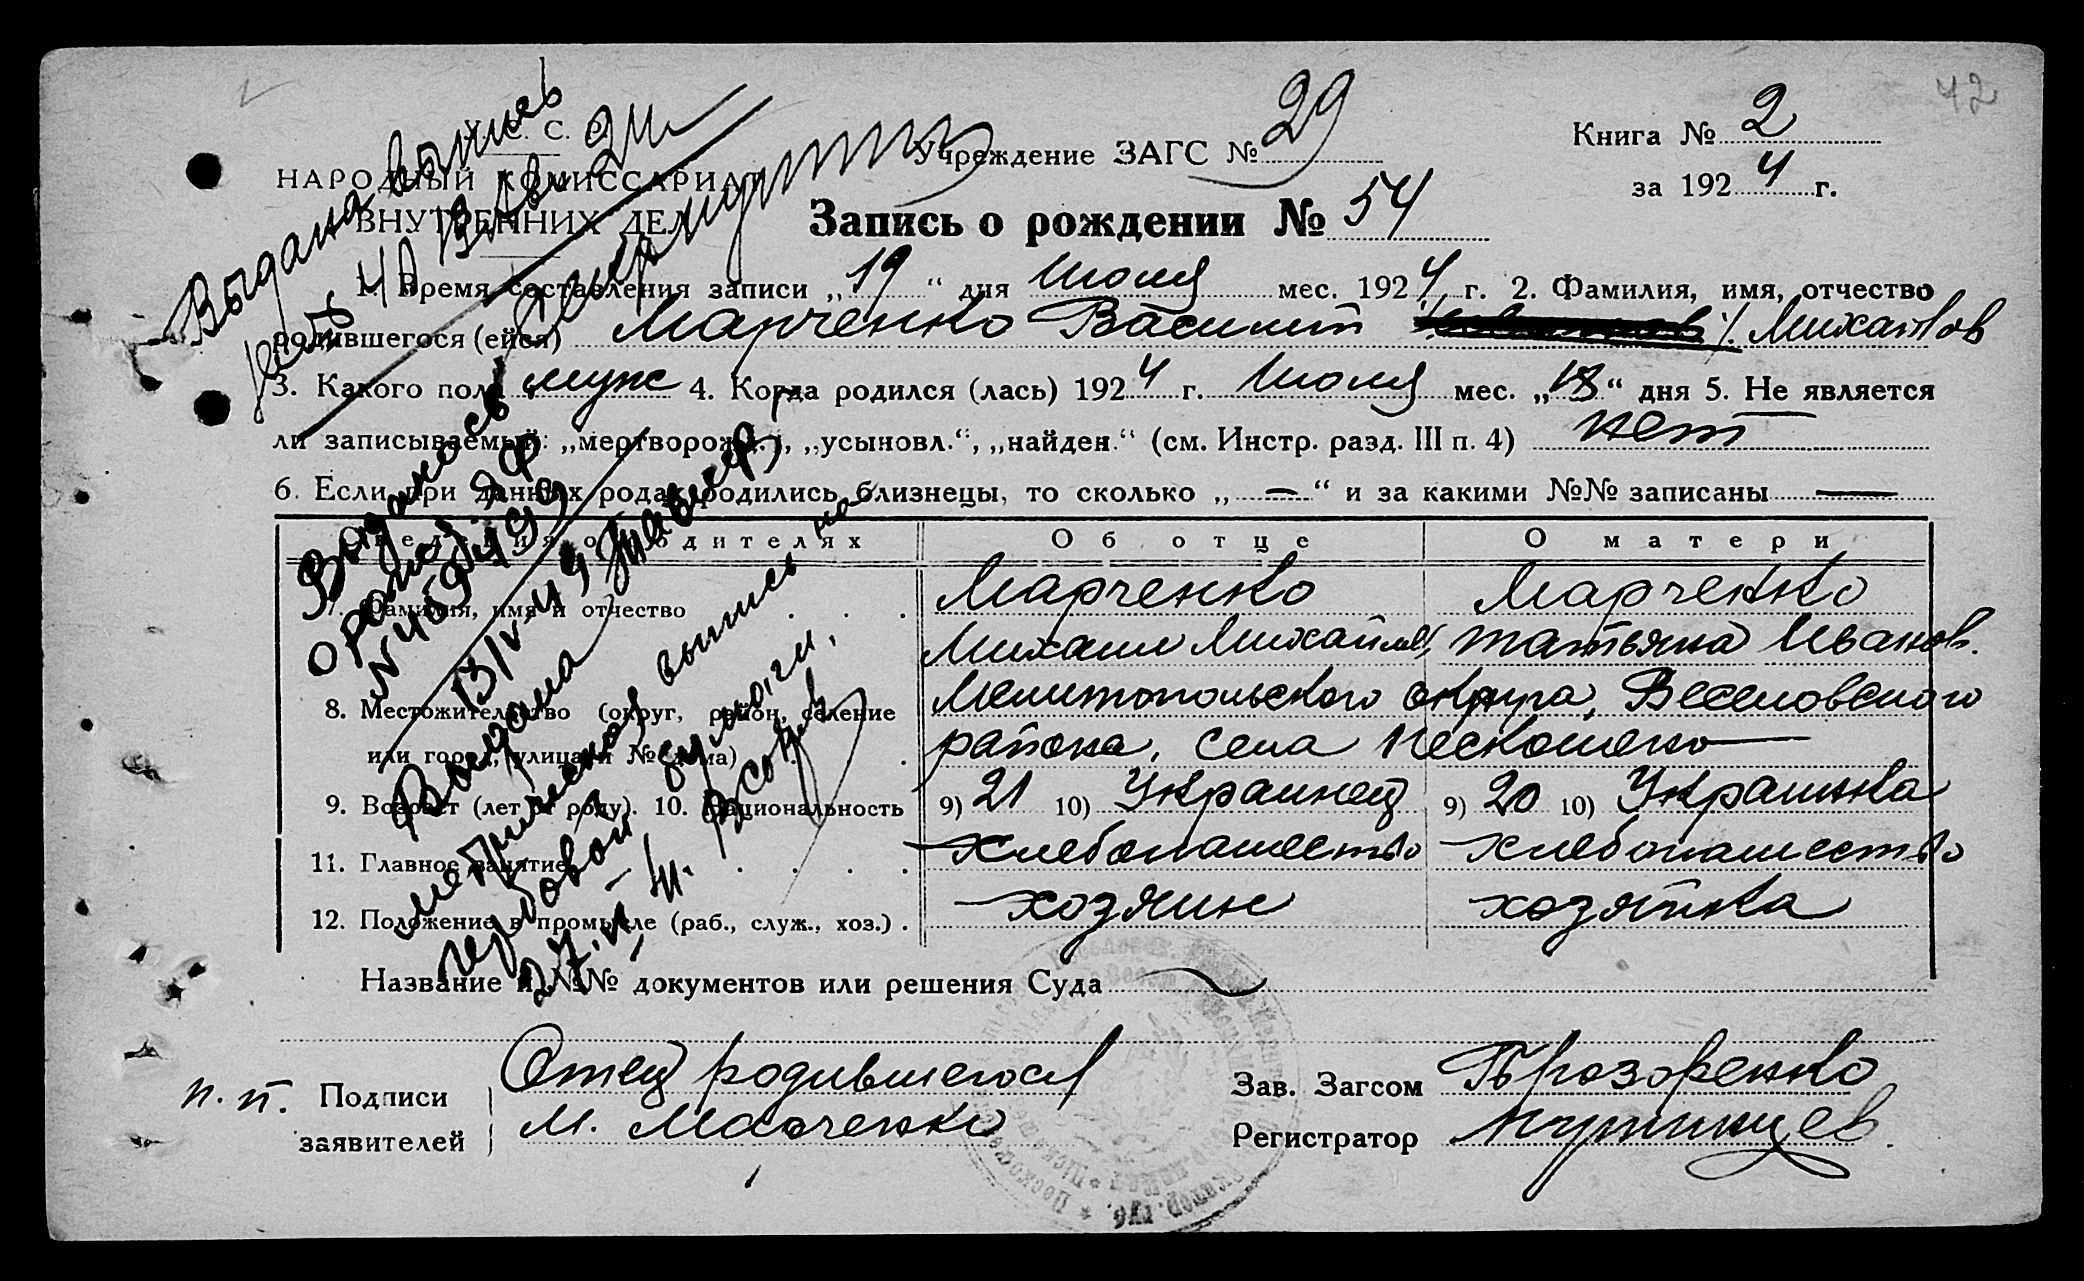 42
С. С. Р.
НАРОДНЫЙ КОМИССАРИАТ
ВНУТРЕННИХ ДЕЛ
Учреждение ЗАГС № 29
Книга № 2
за 1924 г.
Запись о рождении № 54
1. Время составления записи „19“ дня Июля мес. 1924 г. 2. Фамилия, имя, отчество
родившегося (ейся) Марченко Василий Михайлов
3. Какого пола муж 4. Когда родился (лась) 1924 г. Июля мес. „18“ дня 5. Не является
ли записываемый: „мертворожд.“, „усыновл.“, „найден.“ (см. Инстр. разд. III п. 4) нет
6. Если при данных родах родились близнецы, то сколько „—“ и за какими №№ записаны —
Сведения о родителях Об отце О матери
7. Фамилия, имя и отчество Марченко Марченко
Михаил Михайлов. Татьяна Иванов.
8. Местожительство (округ, район, селение Мелитопольского округа, Веселовского
или город, улица и № дома) района, села Пескошено
9. Возраст (лет от роду). 10. Национальность 9) 21 10) Украинец 9) 20 10) Украинка
11. Главное занятие хлебопашество хлебопашество
12. Положение в промысле (раб., служ., хоз.) хозяин хозяйка
Название и №№ документов или решения Суда
п. п. Подписи заявителей
Отец родившегося
М. Марченко
Зав. Загсом
Регистратор
Выдана выпись
Выдана
метрическая выпись на
гербовой бумаги,